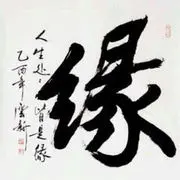 缘
人生处处皆是缘
乙酉年